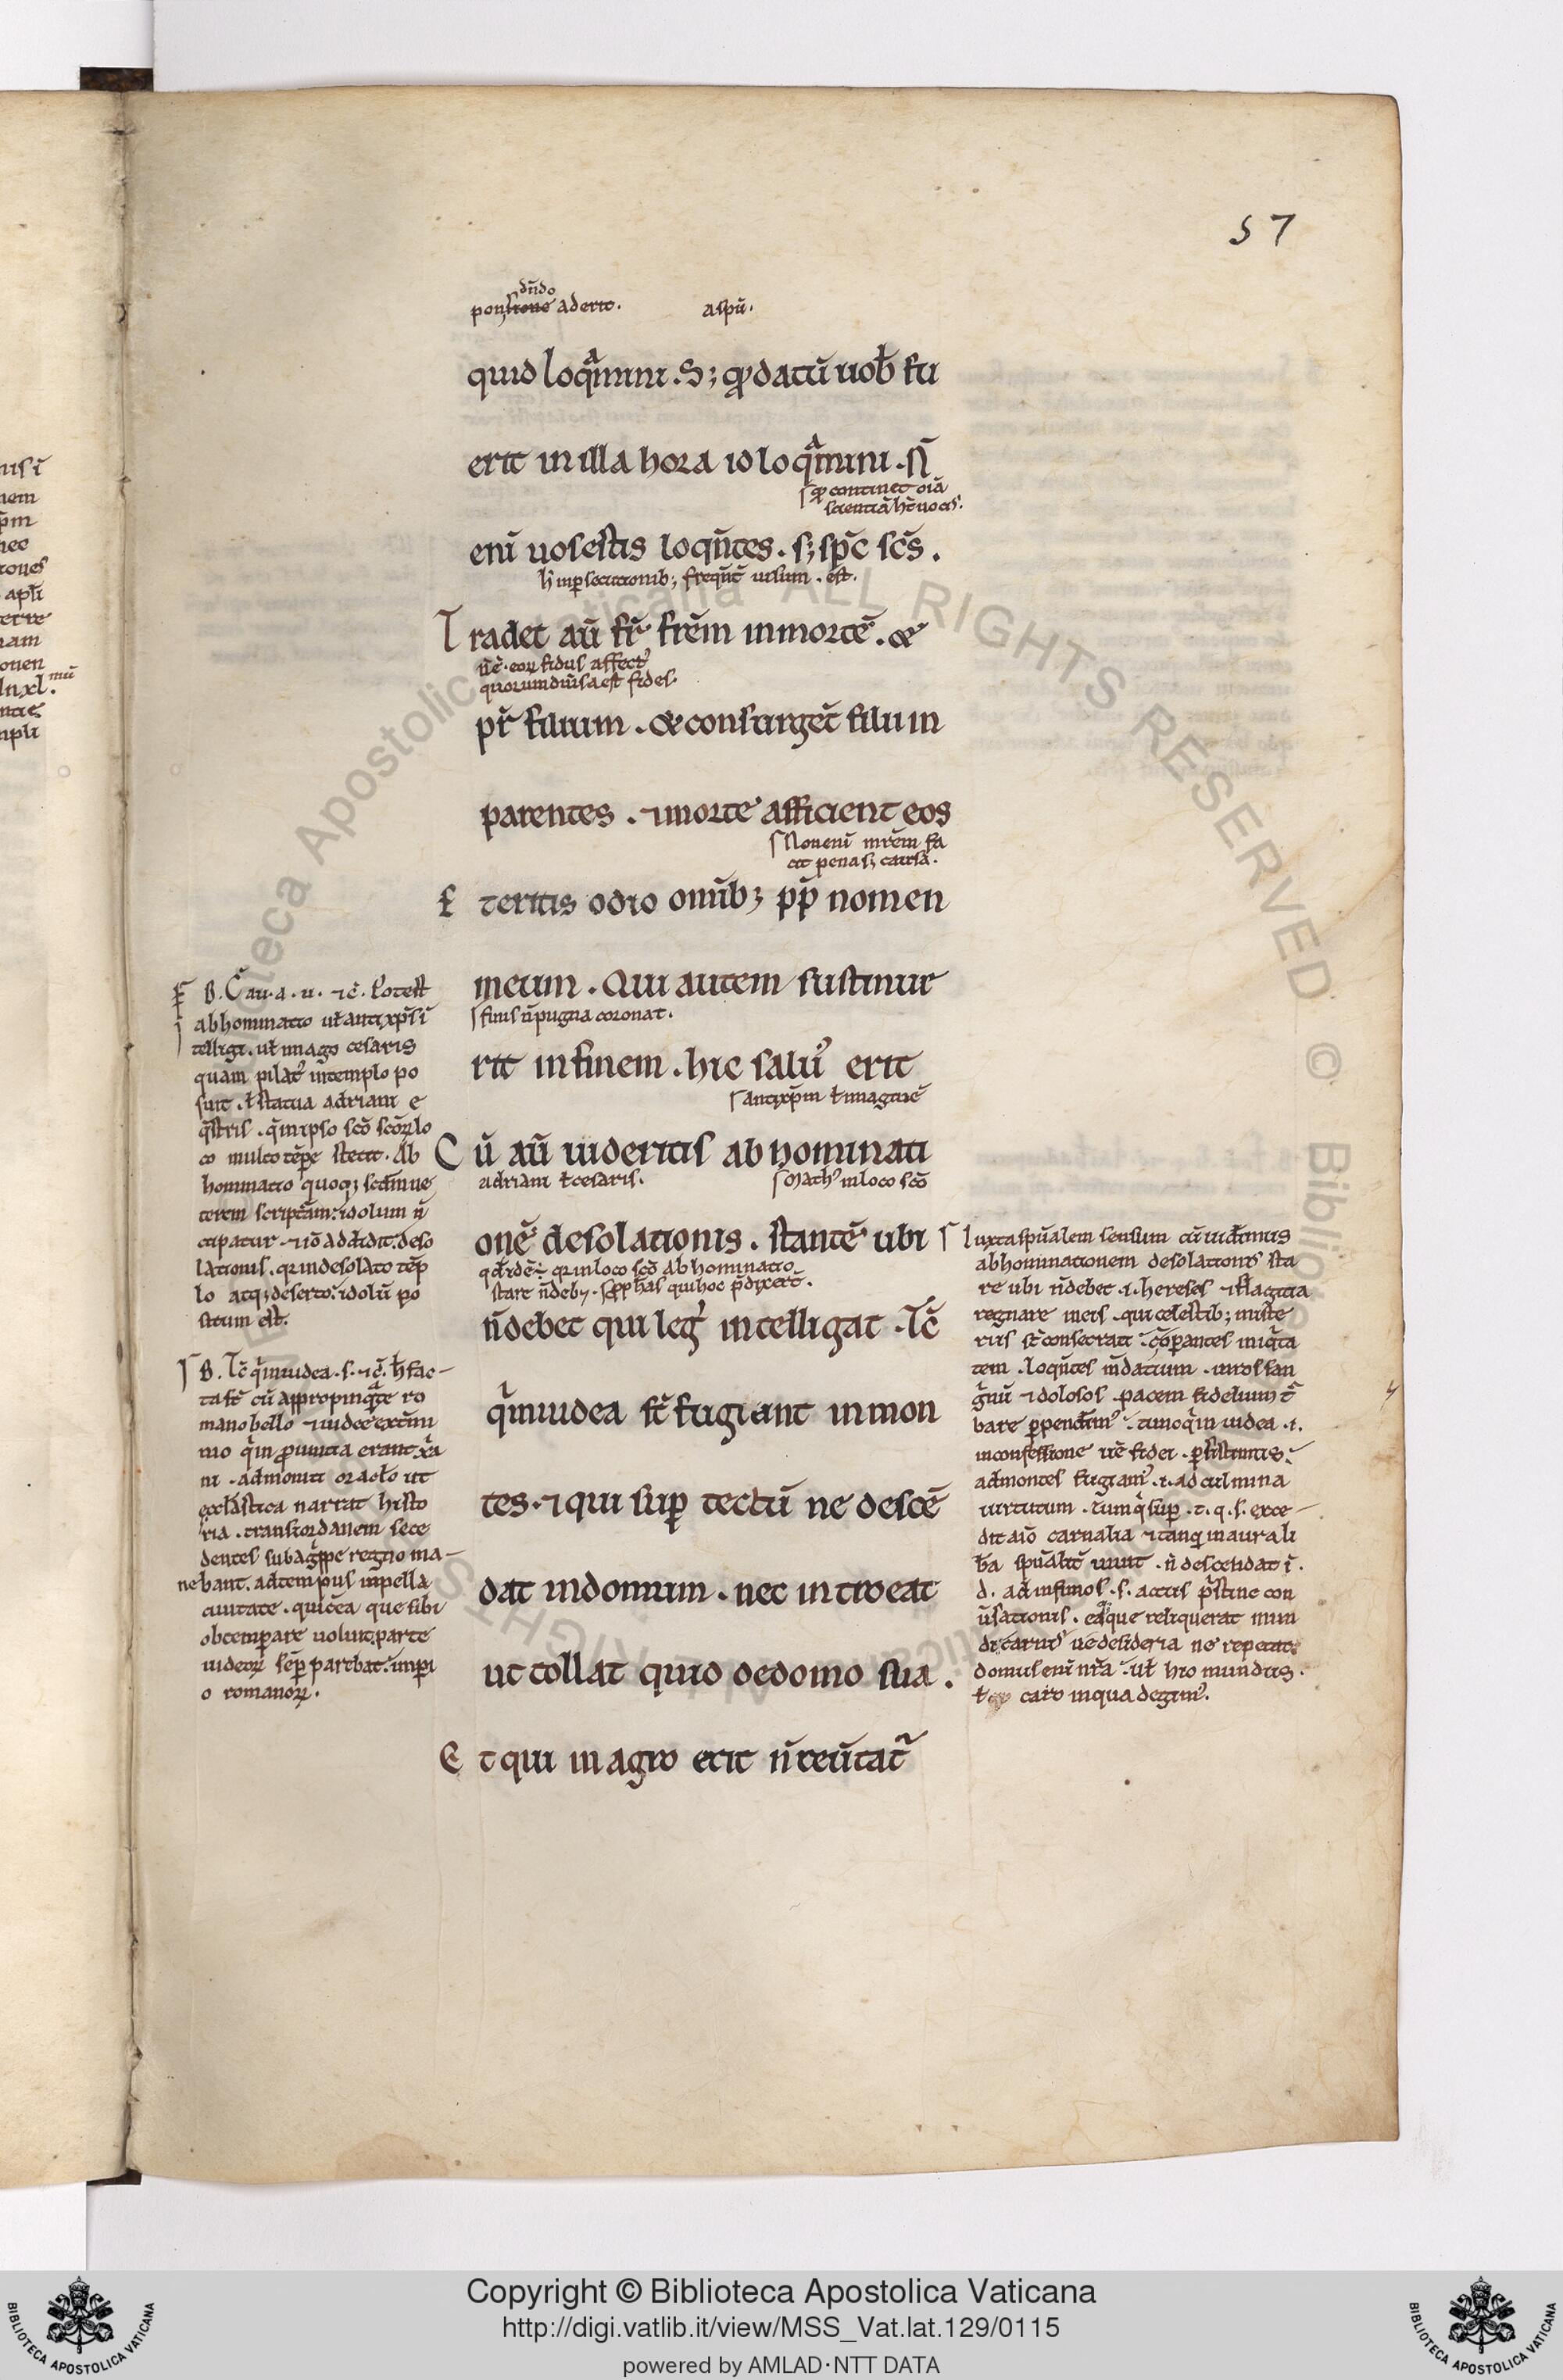 57
dn̄do
pon  aderit. a spū.
quid loqͣmini. S; qd datū uob̄ fu
erit in illa hora id loqͣmini. N̄
qd continet oīa
scientiā h̄t uocis.
enī uos estis loqn̄tes. s; sp̄c sc̄s.
h̄ in persecutionib; frequn̄t uisum. est.
Tradet aū fr̄ frēm in mortē. &
n̄ ē. eoꝝ fidus affectꝰ
quorum diuīsa est fides.
pr̄ filium. & consurgēt filii in
parentes. ⁊ morte afficient eos
Non enī mrēm fa
cit pena s; causā.
Et eritis odio omīb; pp̄ nomen
meum. Qui autem sustinue
finis n̄ pugna coronat.
rit in finem. hic saluꝰ erit
antixp̄m ł imaginē
Cū aū uideritis abhominati
adriani ł cesaris. Mathꝰ in loco sc̄o
onē desolationis. stantē ubi
qd idē ÷ qr in loco sc̄o abhominatio
stare n̄ deb;. 
n̄ debet qui leg̾ intelligat. Tc̄
qͥ in iudea st̄ fugiant in mon
tes. ⁊ qui suꝑ tectū ne descē
dat in domum. nec introeat
ut tollat quid dedomo sua.
Et qui in agro erit n̄ reūtat᷑
B. Cū au. a. u. ⁊c̄. Potest
abhominatio uł antixp̄s ī
telligi. uł imago cesaris
quam pilatꝰ in templo po
suit. ł statua adriani e
qͥstris. qͥ in ipso sc̄o sc̄oꝝ lo
co multo tēpe stetit. Ab
hominatio quoq; scd̄m ue
terem scripturam: idolum n̄
cupatur. ⁊ iō addidit: deso
lationis. qr in desolato tēp
lo atq; deserto: idolū po
situm est.
B. Tc̄ qͥ in iudea. s. ⁊c̄. h̄ fac
ta st̄ cū appropinqͣte ro
mano bello ⁊ 
mo qͥ in prouincia erant xͣ
ni. admoniti oraclo ut
eccl̄astica narrat histo
ria. trans iordanem sece
dentes sub agͥppe regno ma
nebant. ad tempus in pella
ciuitate. 
obtemperare uoluit: parte
iudeoꝝ semꝑ parebat: imperi
o romanoꝝ.
Iuxta spūalem sensum cū uidim̄us
abhominationem desolationis sta
re ubi n̄ debet .i. hereses ⁊ flagitia
regnare in eis. qui celestib; miste
riis st̄ consecrati: ꝯꝑantes iniqͥta
tem. loqn̄tes mendatium. 
 ⁊ dolosos. pacem fidelium t᷑
bare ꝑpendimꝰ: tunc qͥ in iudea .i.
in confessione uē fidei. ꝑsistimus:
ad montes fugiamꝰ .i. ad culmina
uirtutum. tum qͥ suꝑ .t. q. s. exce
dit aīo carnalia ⁊ tanqͣ in aura li
b̄a spūalit᷑ uiuit. n̄ descendat ī.
d. ad infimos .s. actus pͥstine con
u̾sationis. eaque reliquerat mun
di carnisue desideria ne repetat:
domus enī nr̄a: uł hic mundus.
ł caro in qua degimꝰ.
Copyright © Biblioteca Apostolica Vaticana
http://digi.vatlib.it/view/MSS_Vat.lat.129/0115
powered by AMLAD·NTT DATA
BIBLIOTECA APOSTOLICA VATICANA
BIBLIOTECA APOSTOLICA VATICANA